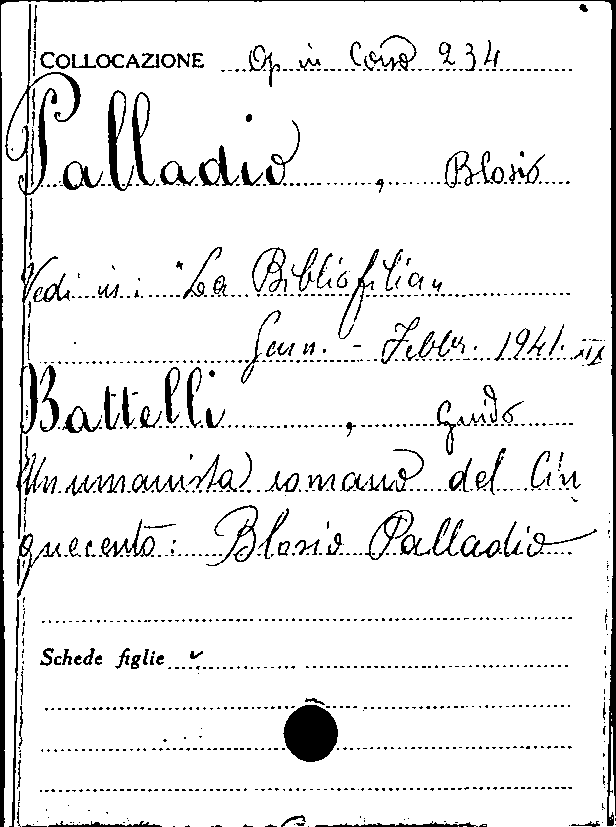 COLLOCAZIONE Op in Corso 234
Palladio, Blosio
Vedi in: "La Bibliofilia"
Genn. - Febbr. 1941. XIX
Battelli, Guido
Un umanista romano del Cin
quecento: Blosio Palladio
Schede figlie